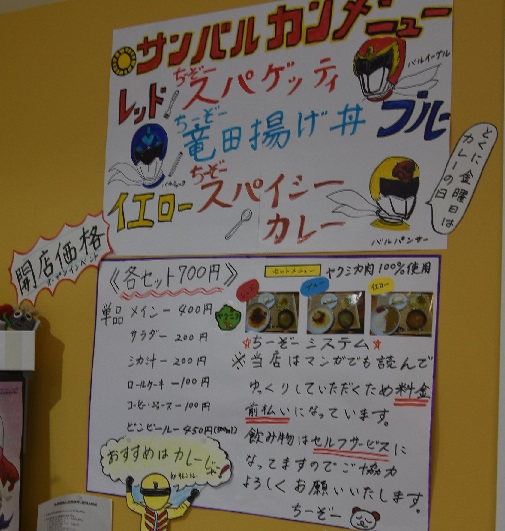 サンバルカンメニュー
レッド
ちーぞー
スパゲッティ
バルイーグル
ちーぞー
竜田揚げ丼
ブルー
イエロー
ちーぞー
スパイシー
カレー
バルパンサー
とくに金曜日は
カレーの日
開店価格
《各セット700円》
単品 メイン ー 400円
サラダー 200円
シカ汁 ー 200円
ロールケーキ ー 100円
コーヒー・ジュース ー 100円
ビンビールー 450円
おすすめはカレーじゃ
セットメニュー
ヤクシカ肉100%使用
レッド
ブルー
イエロー
☆ちーぞーシステム☆
※当店はマンガでも読んで
ゆっくりしていただくため料金
前払いになっています。
飲み物はセルフサービスに
なってますのでご協力
よろしくお願いいたします。
ちーぞー